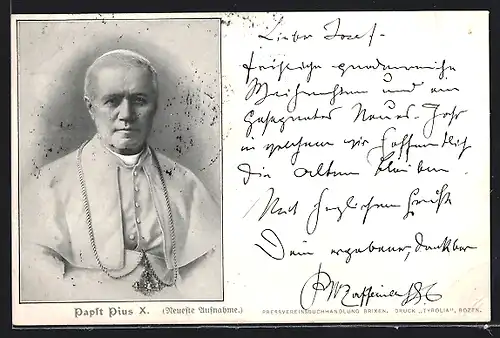 Lieber Josef.
fröhliche gnadenreiche
Weihnachten und ein
gesegnetes Neues-Jahr
in welchem wir hoffentlich
die alten bleiben.
Mit herzlichem Gruß
Dein ergebener, dankbar
Papst Pius X. (Neueste Aufnahme.)
PRESSVEREINSBUCHHANDLUNG BRIXEN. DRUCK „TYROLIA", BOZEN.